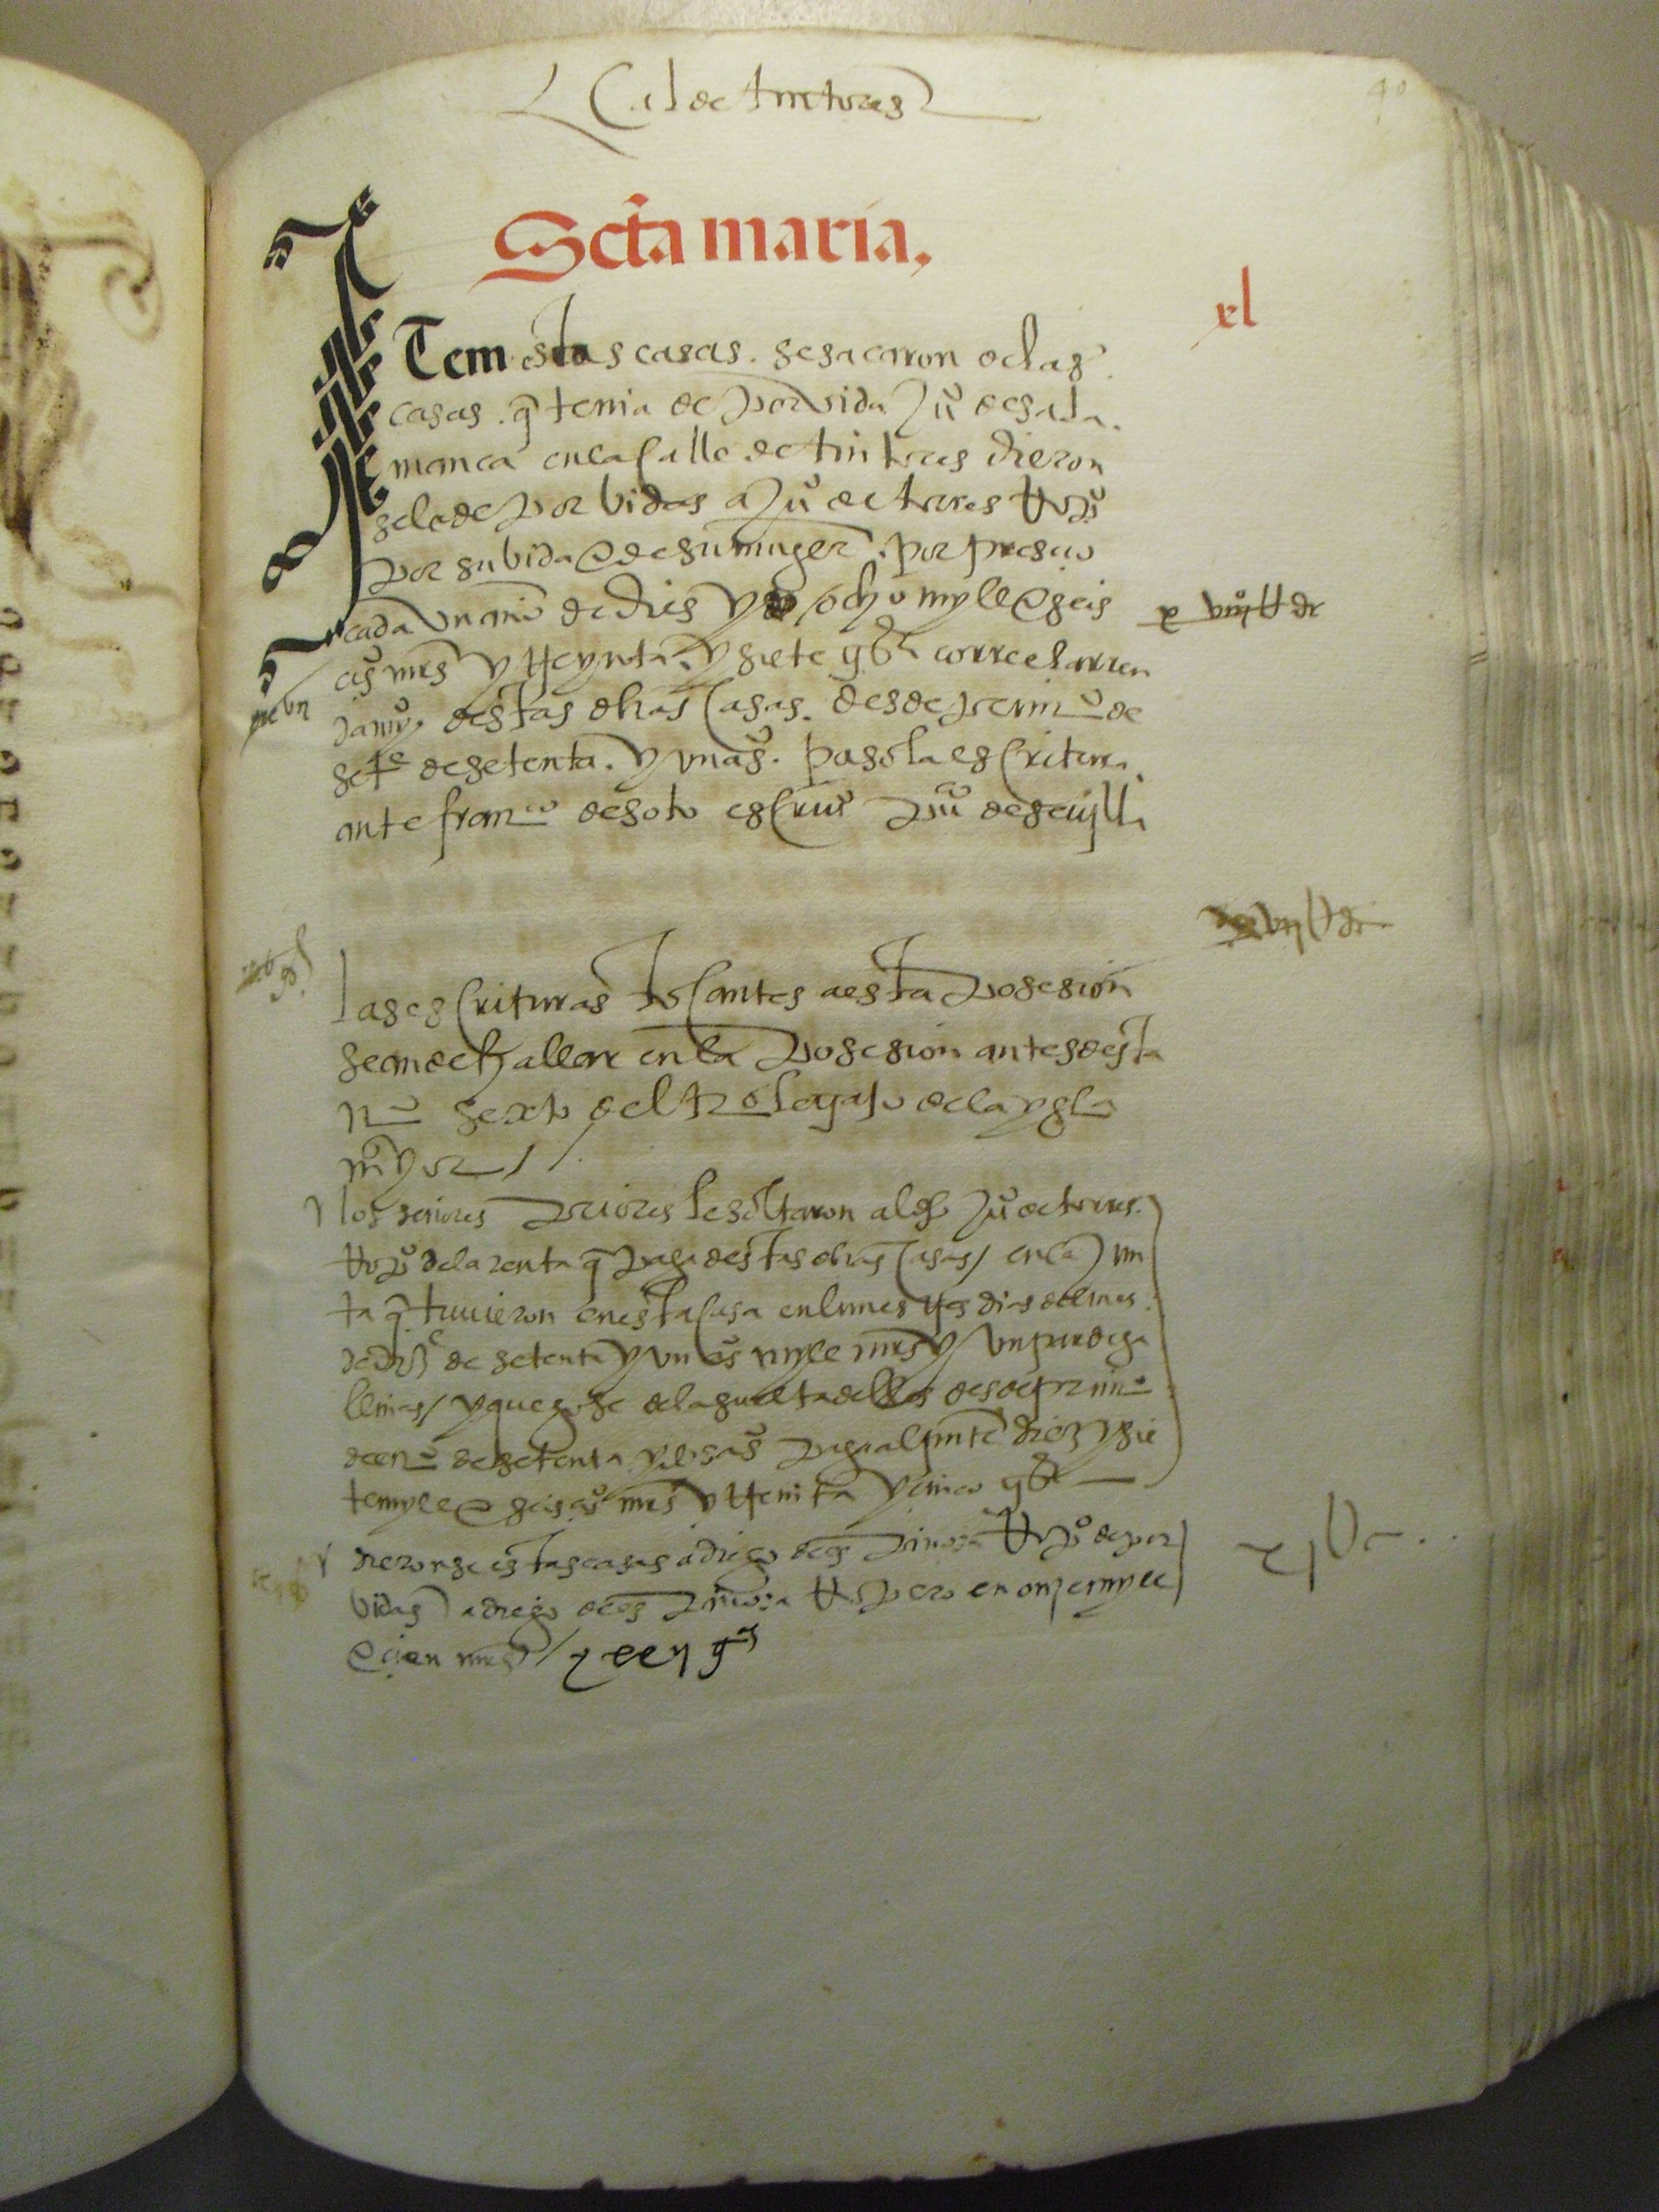 Cal de tintores
40
Scta maria,
xl
Item estas casas. se sacaron de las
casas. q̄ tenia de por vida Juº de sala.
manca en la calle de tintores dieron
se le de por vidas a Juº de torres
por su vida e de su muger. por presçio
cada un año de dies y ocho myll e seis
çºs mrs y treynta. y siete gªs corre el arren
damyº. destas dhas casas. desde primº de
setᵉ de setenta. y un aºs. paso la escritura.
ante franᶜᵒ de soto escrivº puº de sevylla
las escrituras tocantes a esta posesion
se an de hallar en la posesion antes desta
nº sexto del trº legajo de la yglª
mayor
los señores priores le soltaron al dho Juº de torres.
de la renta q̄ paga destas dhas casas / en la Jun
ta q̄ tuvieron en esta casa en lunes tres dias del mes
de dizᵉ de setenta y un aºs myll mrs y un par de ga
llinas / y que goze de la suelta dellos desde primº
de enº de setenta y dos aºs paga al presente diez y sie
te myll e seisçºs mrs y treinta y cinco gªs
dieronse estas casas a diego de espinosa de por
vidas a diego de espinosa en onze myll
e cien mrs /